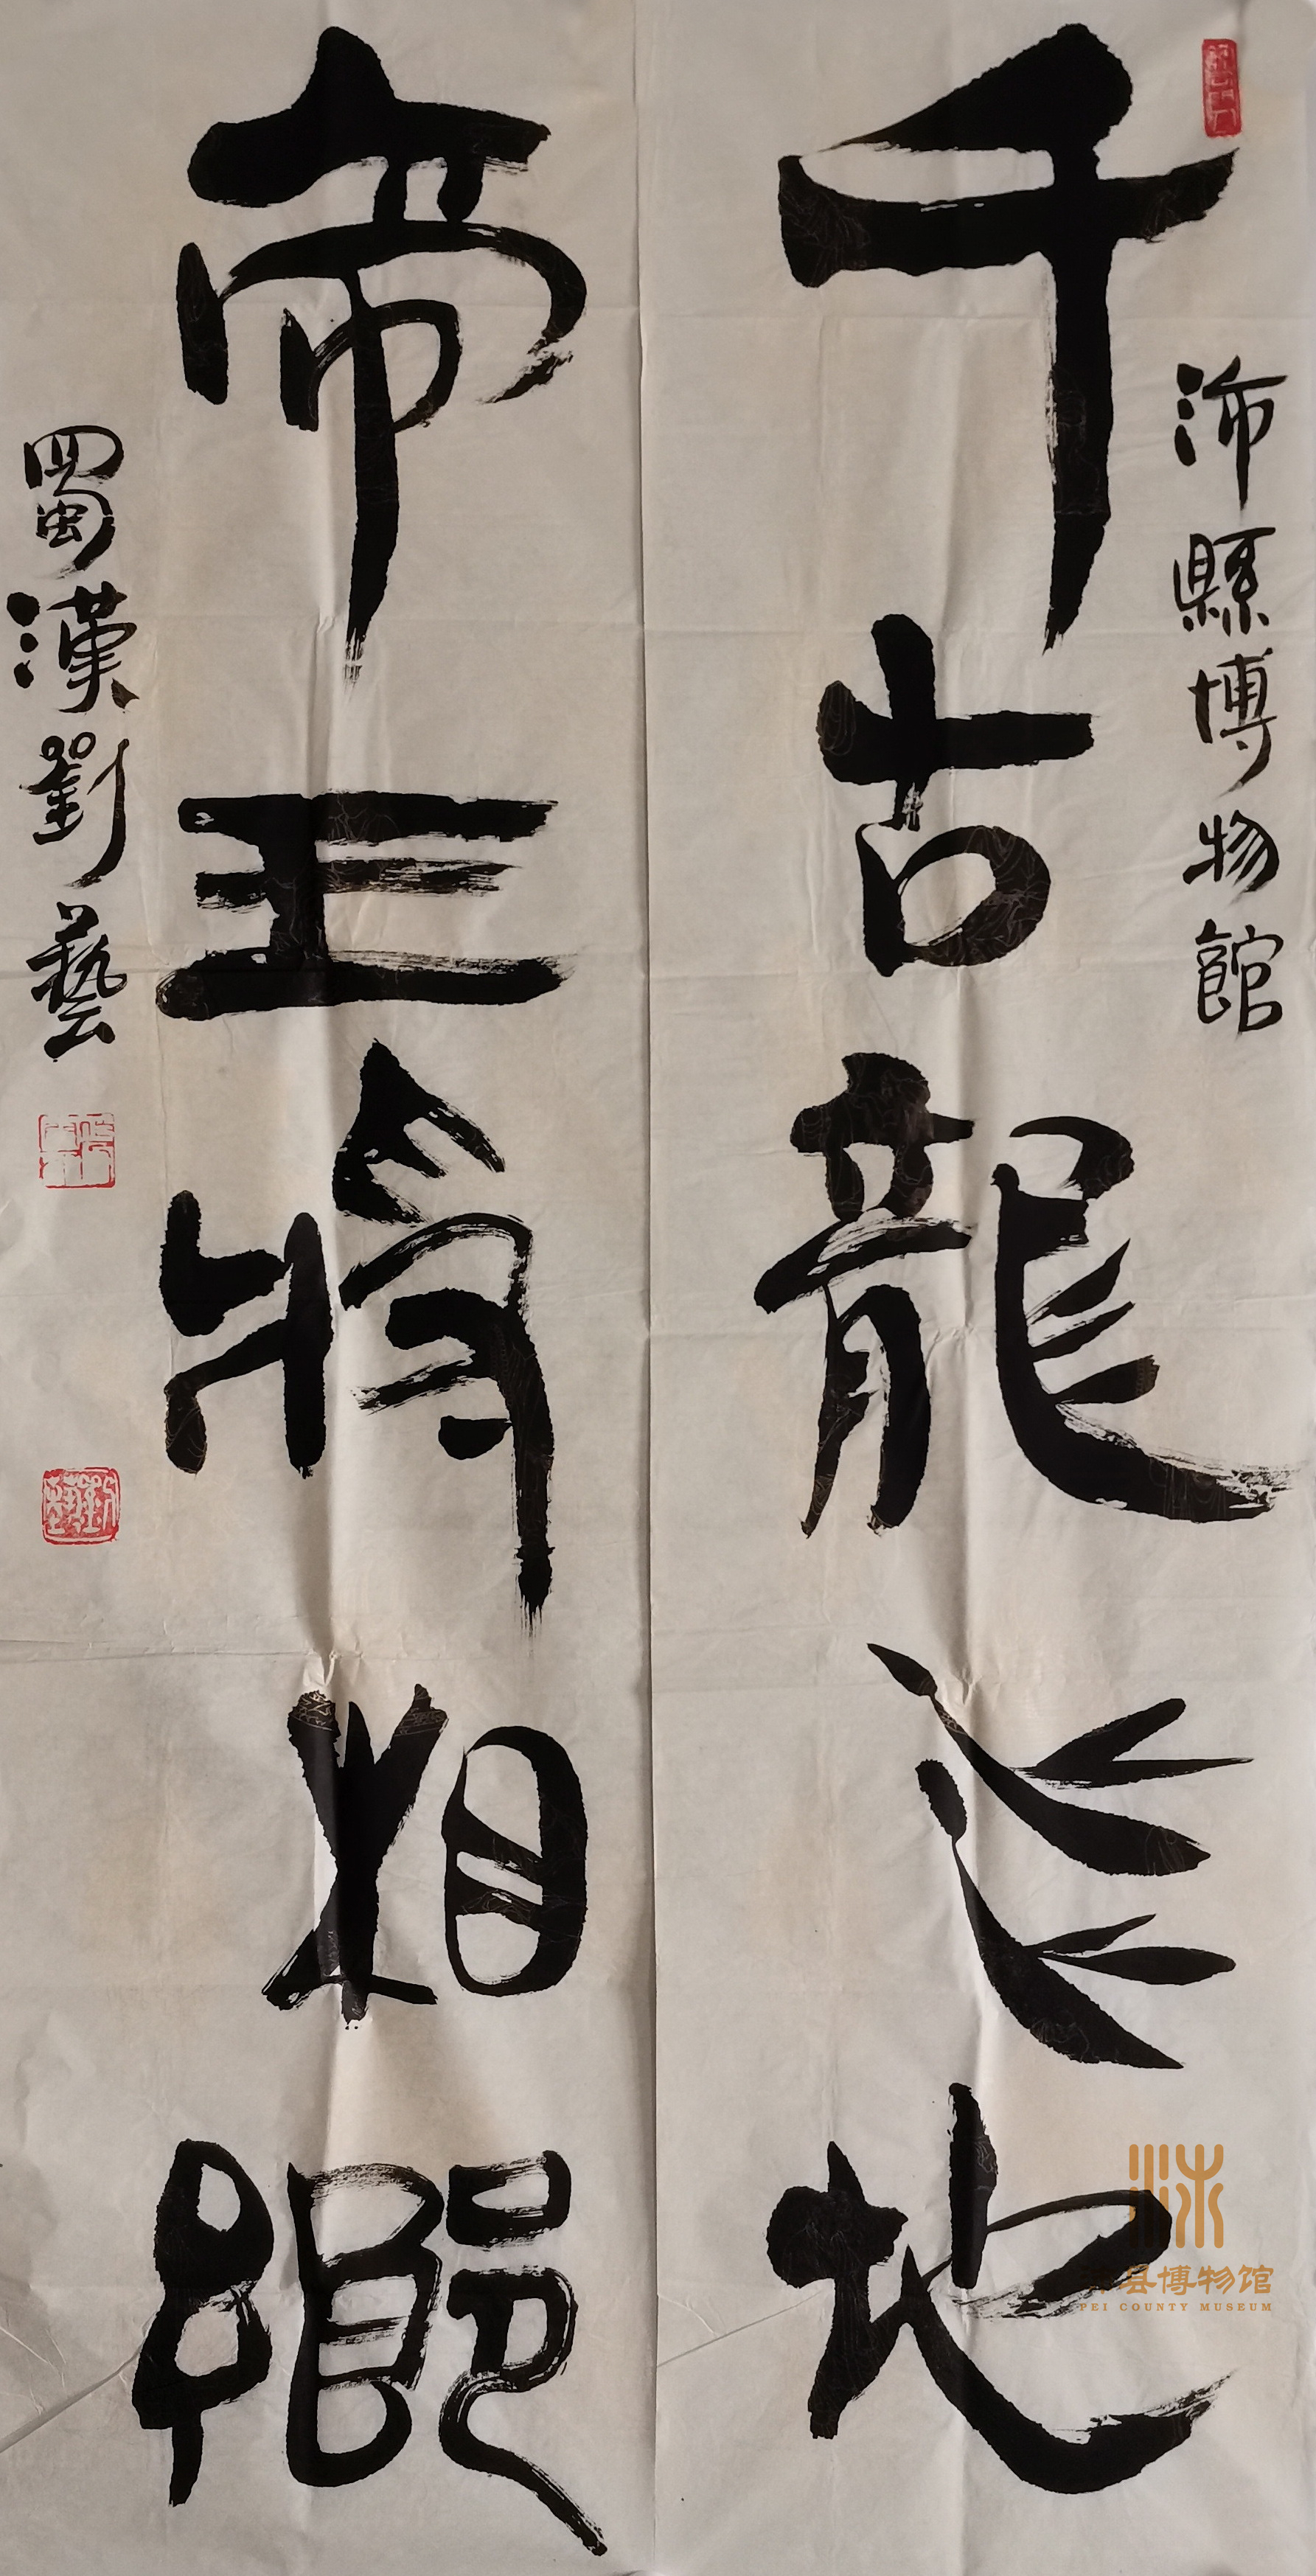 沛縣博物館
千古龍飛地
帝王將相鄉
蜀漢劉藝
劉藝
沛县博物馆
PEI COUNTY MUSEUM